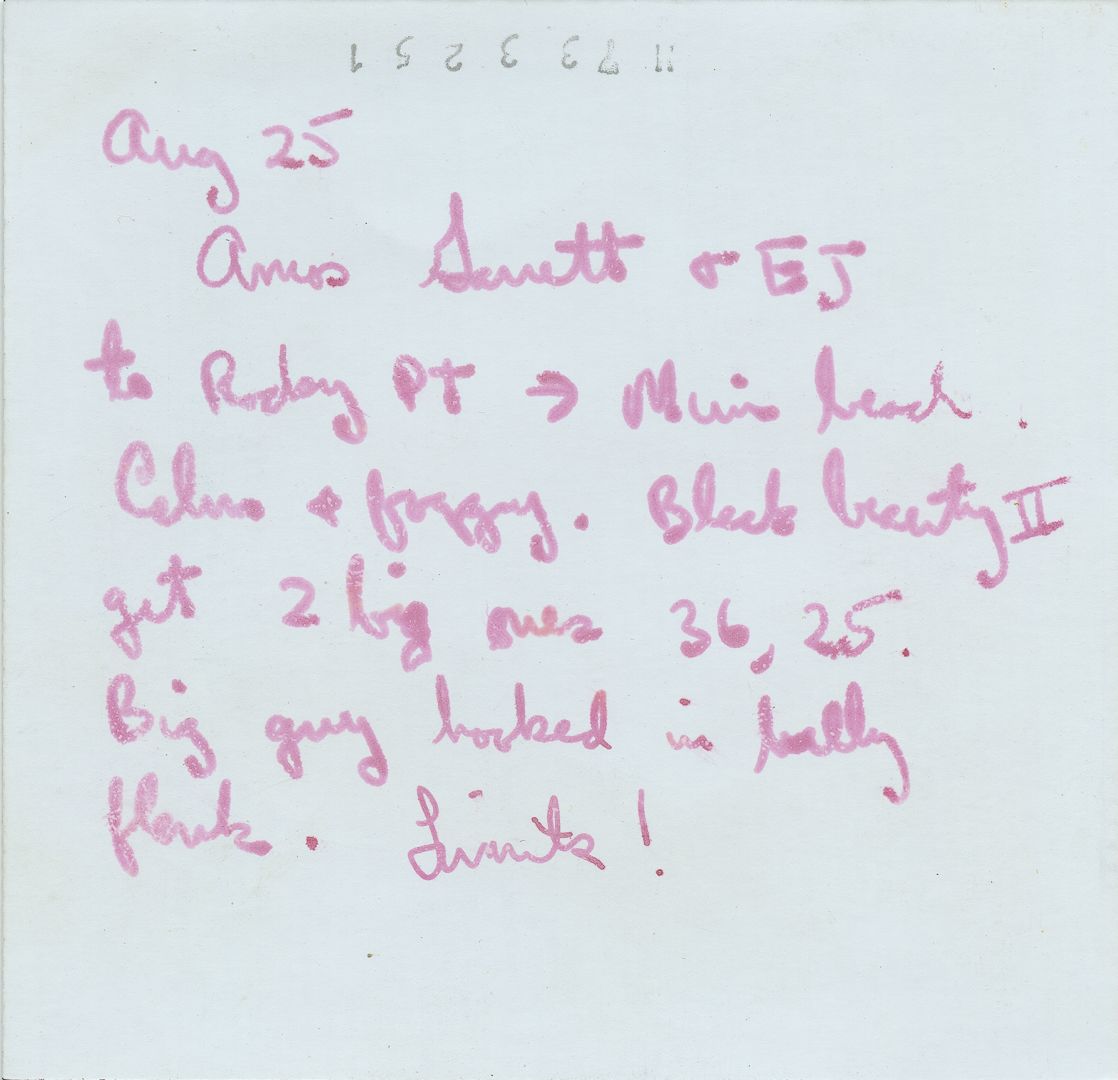 1 5 2 3 3 7 11
Aug 25
Amos Garrett & EJ
to Rocky PT → Muir beach.
Calm & foggy. Black beauty II
get 2 big ones 36, 25.
Big guy hooked in belly
flank. Limits!